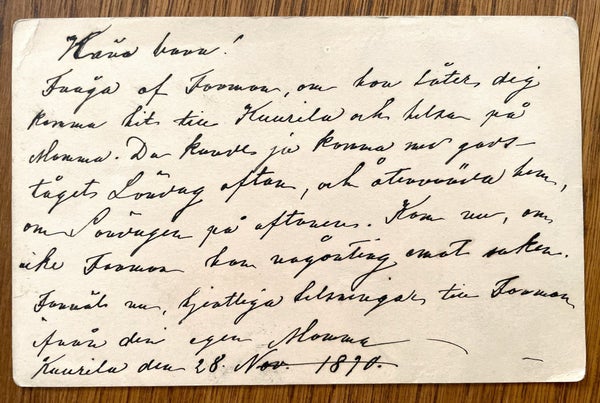 Kära barn!
Fråga af Farmor, om hon låter dig
komma hit till Kuurila och helsa på
Momma. Du kunde ju komma med gods-
tåget Lördag afton, och återvända hem,
om Söndagen på aftonen. Kom nu, om
icke Farmor har någonting emot saken.
Farväl nu, hjertliga helsningar till Farmor
från din egen Momma
Kuurila den 28. Nov. 1890.